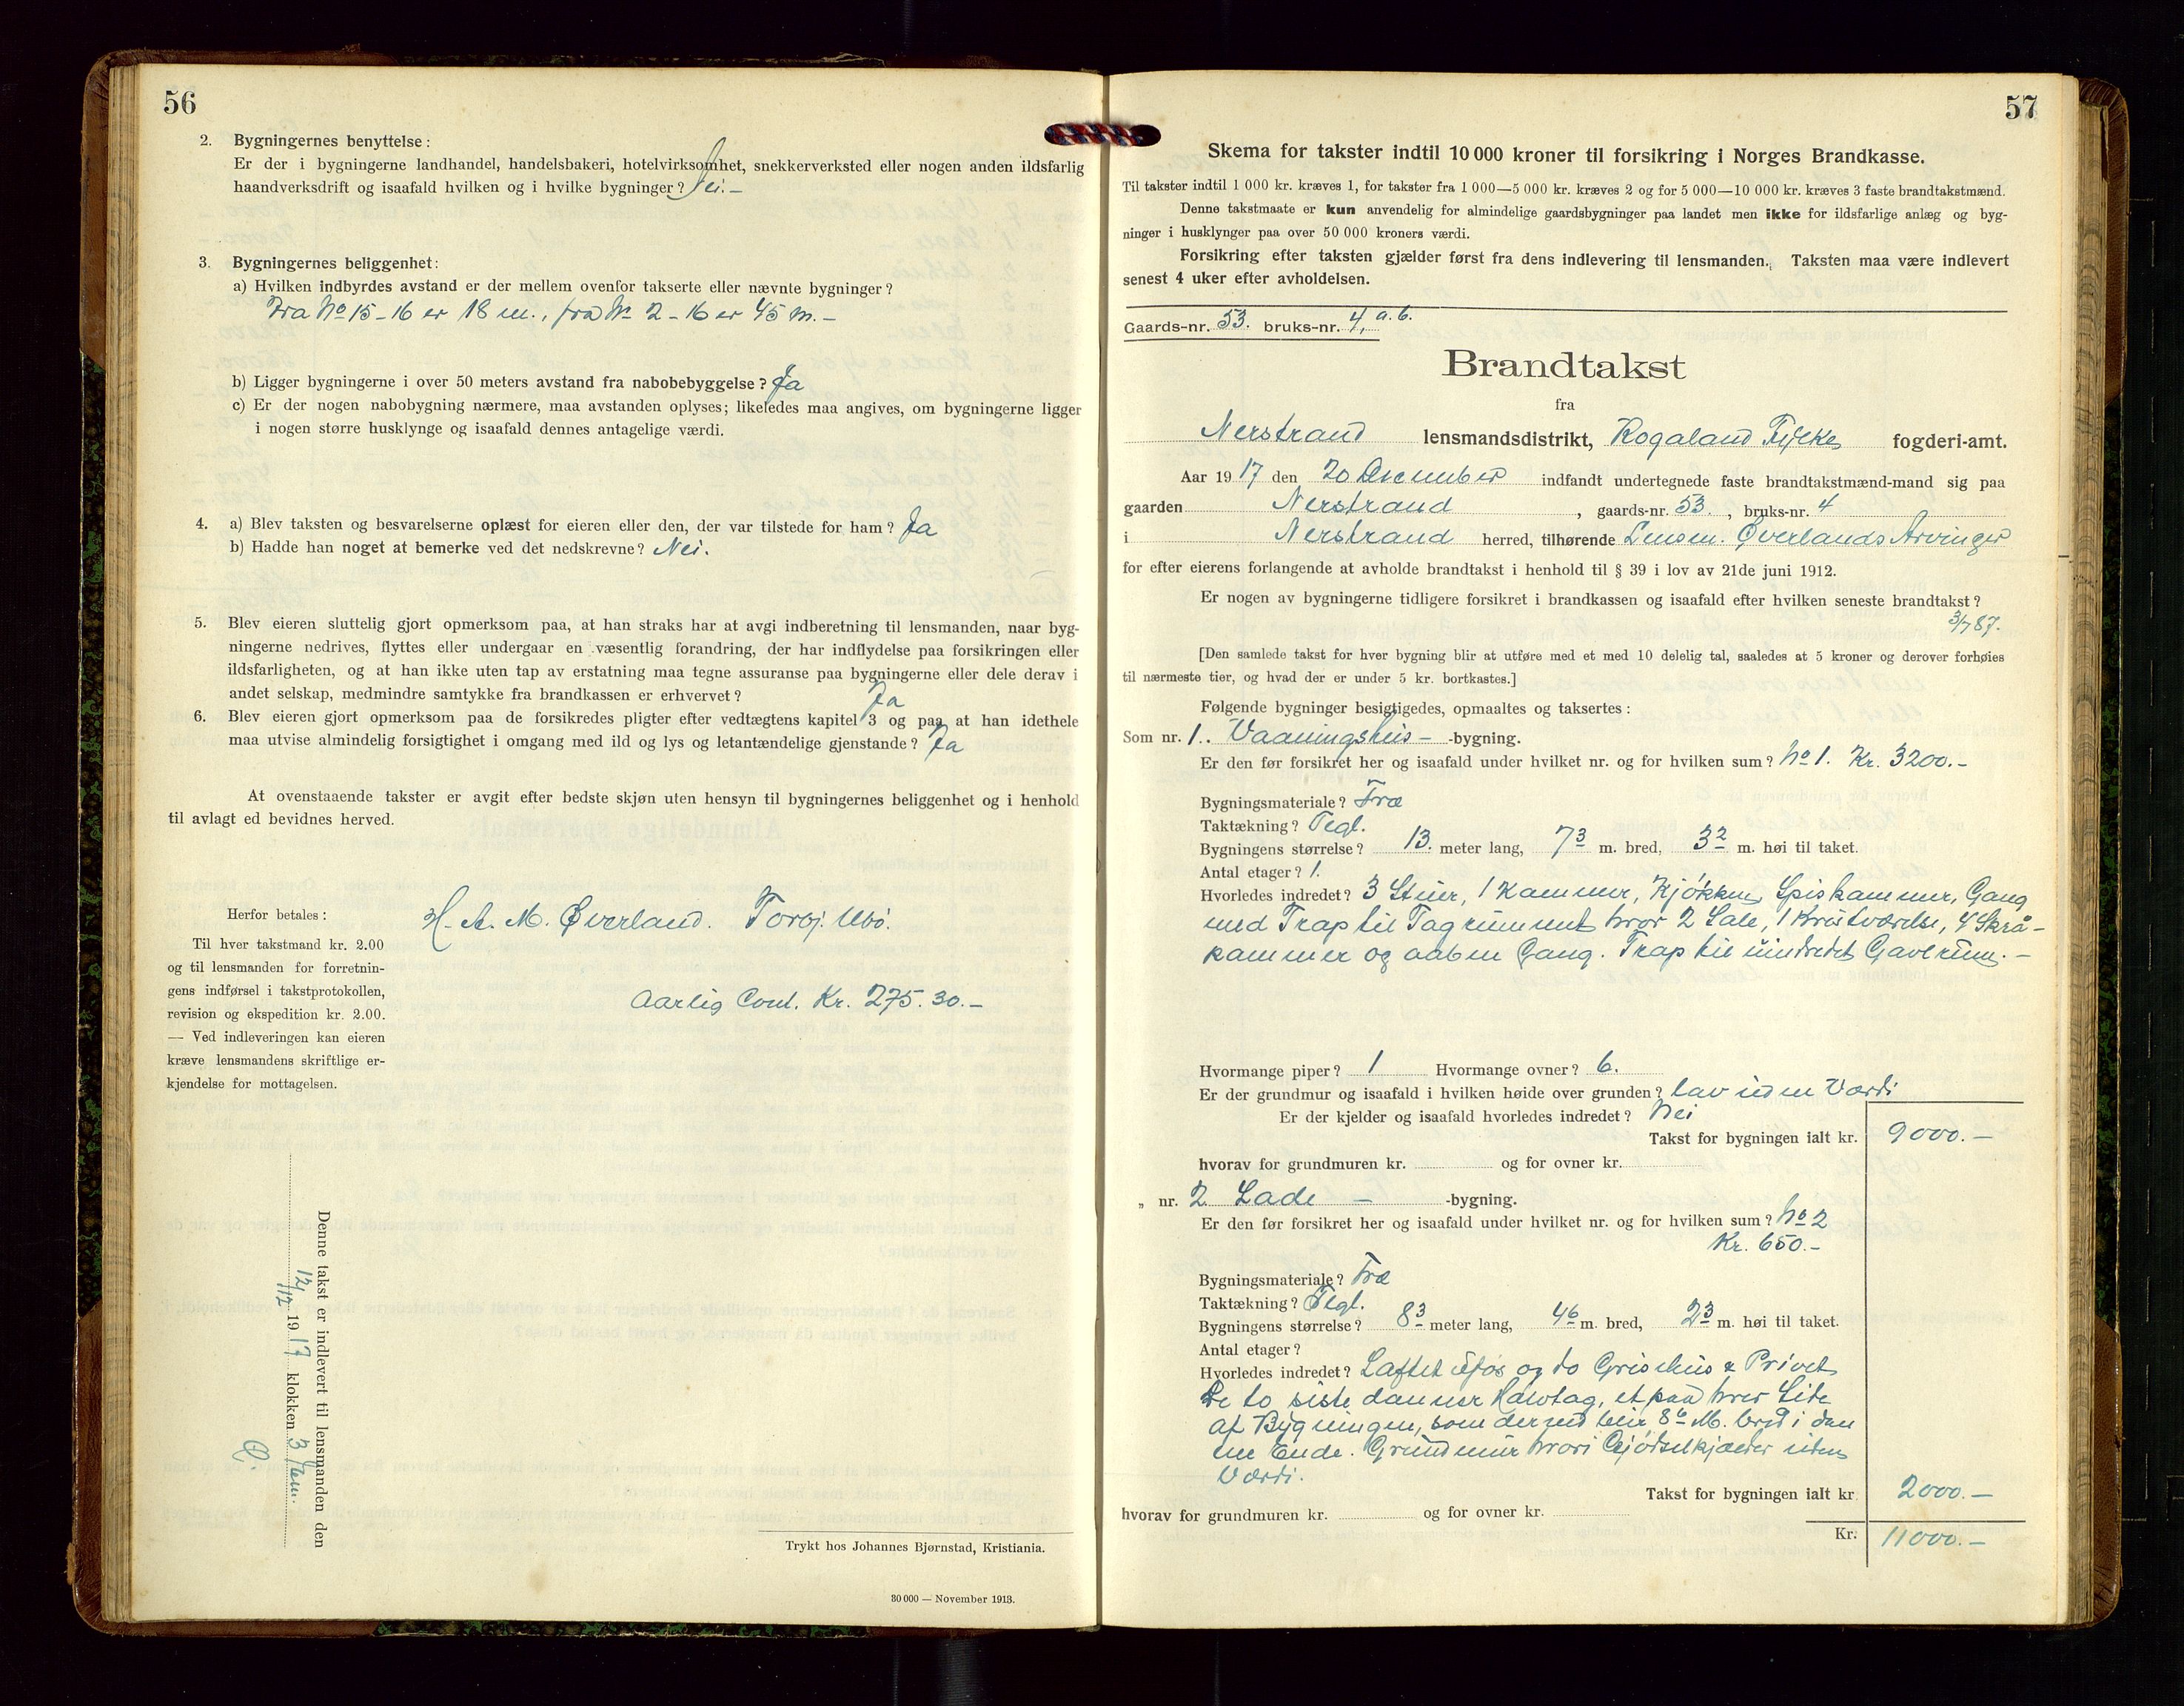 56
2. Bygningernes benyttelse:
Er der i bygningerne landhandel, handelsbakeri, hotelvirksomhet, snekkerverksted eller nogen anden ildsfarlig
haandverksdrift og isaafald hvilken og i hvilke bygninger? Nei.–
3. Bygningernes beliggenhet:
a) Hvilken indbyrdes avstand er der mellem ovenfor takserte eller nævnte bygninger?
Fra No 15–16 er 18 m., fra No 2–16 er 45 m.–
b) Ligger bygningerne i over 50 meters avstand fra nabobebyggelse? Ja
c) Er der nogen nabobygning nærmere, maa avstanden oplyses; likeledes maa angives, om bygningerne ligger
i nogen større husklynge og isaafald dennes antagelige værdi.
4. a) Blev taksten og besvarelserne oplæst for eieren eller den, der var tilstede for ham? Ja
b) Hadde han noget at bemerke ved det nedskrevne? Nei.
5. Blev eieren sluttelig gjort opmerksom paa, at han straks har at avgi indberetning til lensmanden, naar byg-
ningerne nedrives, flyttes eller undergaar en væsentlig forandring, der har indflydelse paa forsikringen eller
ildsfarligheten, og at han ikke uten tap av erstatning maa tegne assuranse paa bygningerne eller dele derav i
andet selskap, medmindre samtykke fra brandkassen er erhvervet? Ja
6. Blev eieren gjort opmerksom paa de forsikredes pligter efter vedtægtens kapitel 3 og paa at han idethele
maa utvise almindelig forsigtighet i omgang med ild og lys og letantændelige gjenstande? Ja
At ovenstaaende takster er avgit efter bedste skjøn uten hensyn til bygningernes beliggenhet og i henhold
til avlagt ed bevidnes herved.
H. A. M. Øverland. Torbj. Ubö.
Aarlig Cont. Kr. 275.30.–
Herfor betales:
Til hver takstmand kr. 2.00
og til lensmanden for forretnin-
gens indførsel i takstprotokollen,
revision og ekspedition kr. 2.00.
— Ved indleveringen kan eieren
kræve lensmandens skriftlige er-
kjendelse for mottagelsen.
Denne takst er indlevert til lensmanden den
12/12 1917 klokken 3 Em.
Ø.
Trykt hos Johannes Bjørnstad, Kristiania.
30 000 — November 1913.
57
Skema for takster indtil 10 000 kroner til forsikring i Norges Brandkasse.
Til takster indtil 1 000 kr. kræves 1, for takster fra 1 000—5 000 kr. kræves 2 og for 5 000—10 000 kr. kræves 3 faste brandtakstmænd.
Denne takstmaate er kun anvendelig for almindelige gaardsbygninger paa landet men ikke for ildsfarlige anlæg og byg-
ninger i husklynger paa over 50 000 kroners værdi.
Forsikring efter taksten gjælder først fra dens indlevering til lensmanden. Taksten maa være indlevert
senest 4 uker efter avholdelsen.
Gaards-nr. 53. bruks-nr. 4, a.b.
Brandtakst
fra
Nerstrand lensmandsdistrikt, Rogaland Fylke fogderi-amt.
Aar 1917 den 20 December indfandt undertegnede faste brandtakstmænd-mand sig paa
gaarden Nerstrand, gaards-nr. 53., bruks-nr. 4
i Nerstrand herred, tilhørende Lensm. Øverlands Arvinger
for efter eierens forlangende at avholde brandtakst i henhold til § 39 i lov av 21de juni 1912.
Er nogen av bygningerne tidligere forsikret i brandkassen og isaafald efter hvilken seneste brandtakst?
3/7 87.
[Den samlede takst for hver bygning blir at utføre med et med 10 delelig tal, saaledes at 5 kroner og derover forhøies
til nærmeste tier, og hvad der er under 5 kr. bortkastes.]
Følgende bygninger besigtigedes, opmaaltes og taksertes:
Som nr. 1. Vaaningshus– -bygning.
Er den før forsikret her og isaafald under hvilket nr. og for hvilken sum? No 1. Kr. 3200.–
Bygningsmateriale? Træ
Taktækning? Tegl.
Bygningens størrelse? 13. meter lang, 7³ m. bred, 3² m. høi til taket.
Antal etager? 1.
Hvorledes indredet? 3 Stuer, 1 Kammer, Kjökken, Spiskammer, Gang
med Trap til Tagrummet hvor 2 Sale, 1 Kvistværelse, 4 Skrå-
kammer og aaben Gang. Trap til uindredet Gavlrum.–
Hvormange piper? 1 Hvormange ovner? 6.
Er der grundmur og isaafald i hvilken høide over grunden? lav uden Værdi
Er der kjelder og isaafald hvorledes indredet? Nei
Takst for bygningen ialt kr. 9000.–
hvorav for grundmuren kr. og for ovner kr.
„ nr. 2 Lade – -bygning.
Er den før forsikret her og isaafald under hvilket nr. og for hvilken sum? No 2
Kr. 650.–
Bygningsmateriale? Træ
Taktækning? Tegl.
Bygningens størrelse? 8³ meter lang, 4⁶ m. bred, 2³ m. høi til taket.
Antal etager?
Hvorledes indredet? Laftet Fjös og do Grisehus & Privet
De to siste danner Halvtag, et paa hver Side
af Bygningen, som derved blir 8⁶ M. bred i den
ene Ende. Grundmur hvori Gjödselkjælder uden
Værdi.
Takst for bygningen ialt kr. 2000.–
hvorav for grundmuren kr. og for ovner kr.
Kr. 11000.–